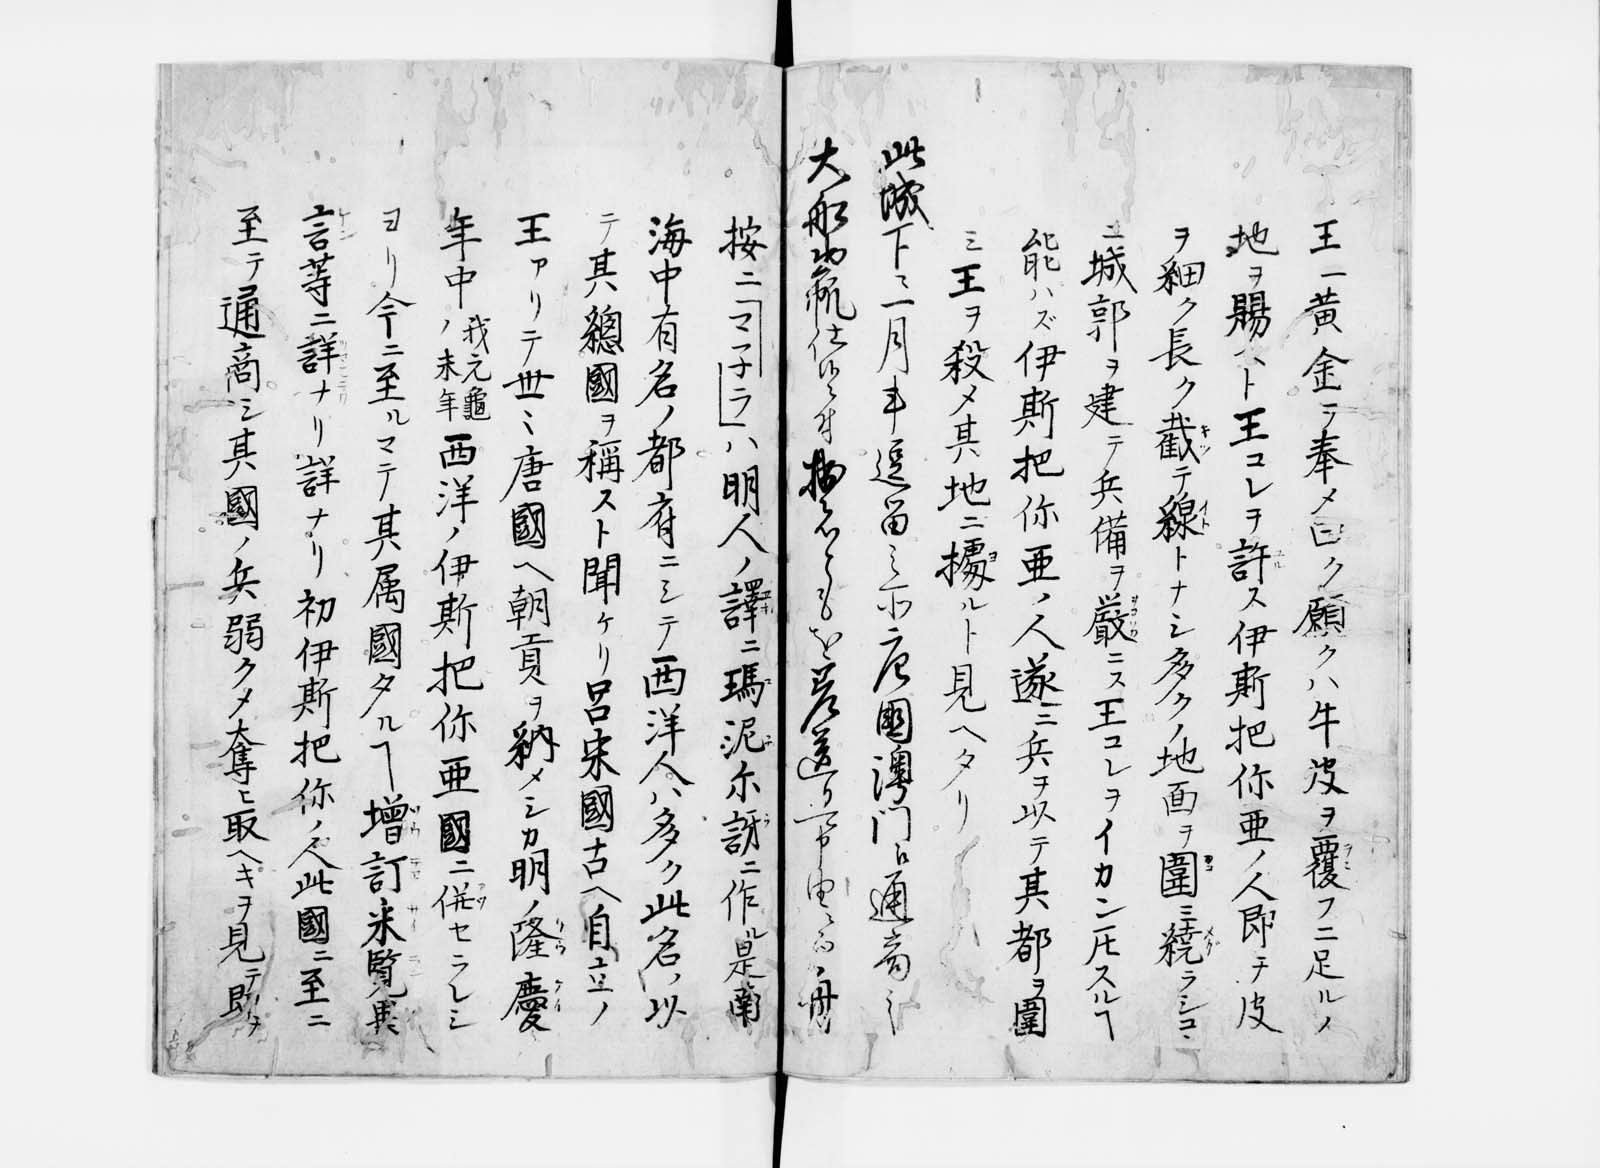 王ニ黄金ヲ奉メ曰ク願クハ牛皮ヲ覆フニ足ルノ
地ヲ賜ヘト王コレヲ許ス伊斯把你亜ノ人即チ皮
ヲ細ク長ク截テ線トナシ多クノ地面ヲ圍ミ繞ラシコヽ
ニ城郭ヲ建テ兵備ヲ厳ニス王コレヲイカン𪜈スルヿ
能ハズ伊斯把你亜ノ人遂ニ兵ヲ以テ其都ヲ圍
ミ王ヲ殺メ其地ニ據ルト見ヘタリ
此城下ニ一月半逗留シ亦唐國澳門に通商之
大船出航仕候付私ともを差送り
按ニ「マネラ」ハ明人ノ譯ニ瑪泥尓訝ニ作ル是南
海中有名ノ都府ニシテ西洋人ハ多ク此名ヲ以
テ其總國ヲ稱スト聞ケリ呂宋國古ヘ自立ノ
王アリテ世ニ唐國ヘ朝貢ヲ納メシカ明ノ隆慶
年中ノ我元龜未年西洋ノ伊斯把你亜國ニ併セラレシ
ヨリ今ニ至ルマテ其属國タルヿ増訂采覧異
言等ニ詳ナリ詳ナリ初伊斯把你ノ人此國ニ至ニ
至テ通商シ其國ノ兵弱クメ奪ヒ取ヘキヲ見テ即チ